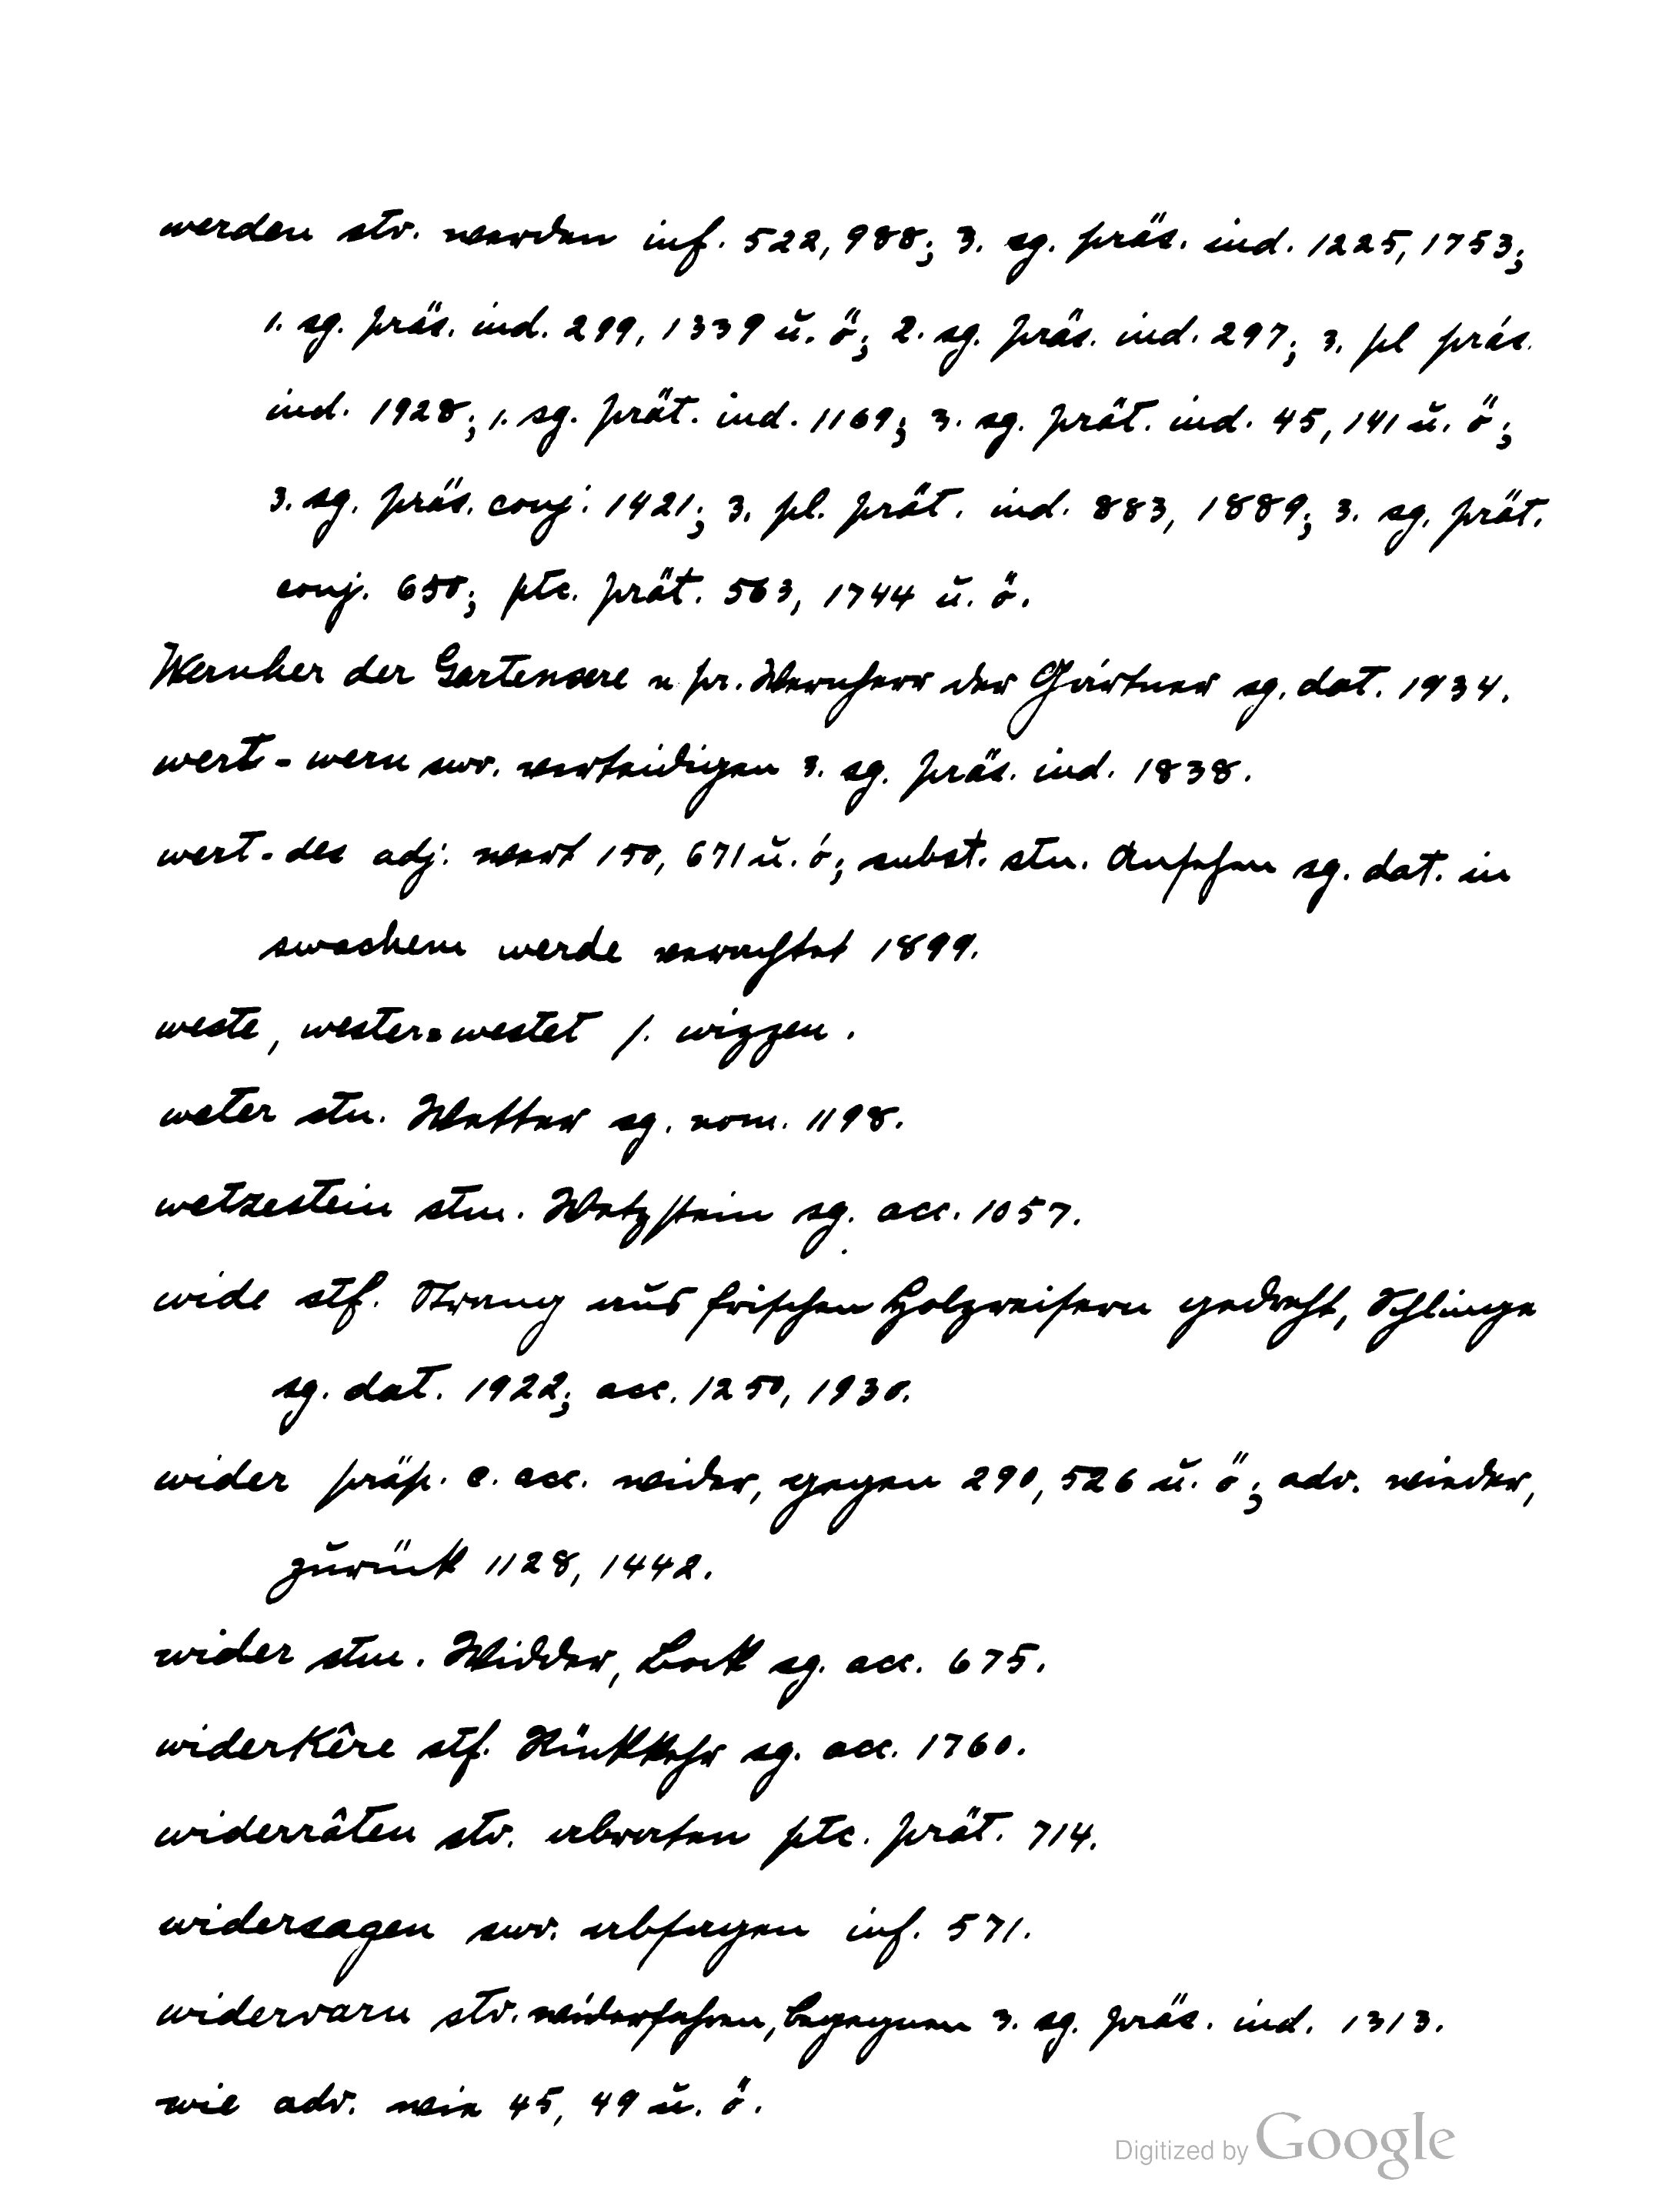 werden stv. werden inf. 522, 988; 3. sg. präs. ind. 1225, 1753;
1. sg. präs. ind. 299, 1339 u. ö; 2. sg. präs. ind. 297; 3. pl präs.
ind. 1928; 1. sg. prät. ind. 1169; 3. sg. prät. ind. 45, 141 u. ö;
3. sg. präs. conj. 1421; 3. pl. prät. ind. 883, 1889; 3. sg. prät.
conj. 650; ptc. prät. 563, 1744 u. ö.
Wernher der Gartenaere n pr. Wernherr der Gärtner sg. dat. 1934.
wert - wern swv. verteidigen 3. sg. präs. ind. 1838.
wert - des adj. wert 150, 671 u. ö; subst. stn. Ansehen sg. dat. in
swachem werde verachtet 1899.
weste, wester = westet s. wizzen.
weter stn. Wetter sg. nom. 1198.
wetzestein stm. Wetzstein sg. acc. 1057.
wide stf. Strang aus frischen Holzreisern gedreht, Schlinge
sg. dat. 1922; acc. 1250, 1930.
wider präp. c. acc. wider, gegen 290, 526 u. ö; adv. wieder,
zurück 1128, 1442.
wider stm. Widder, Bock sg. acc. 675.
widerkêre stf. Rückkehr sg. acc. 1760.
widerrâten stv. abraten ptc. prät. 714.
widersagen swv. absagen inf. 571.
widervarn stv. widerfahren, begegnen 3. sg. präs. ind. 1313.
wie adv. wie 45, 49 u. ö.
Digitized by Google